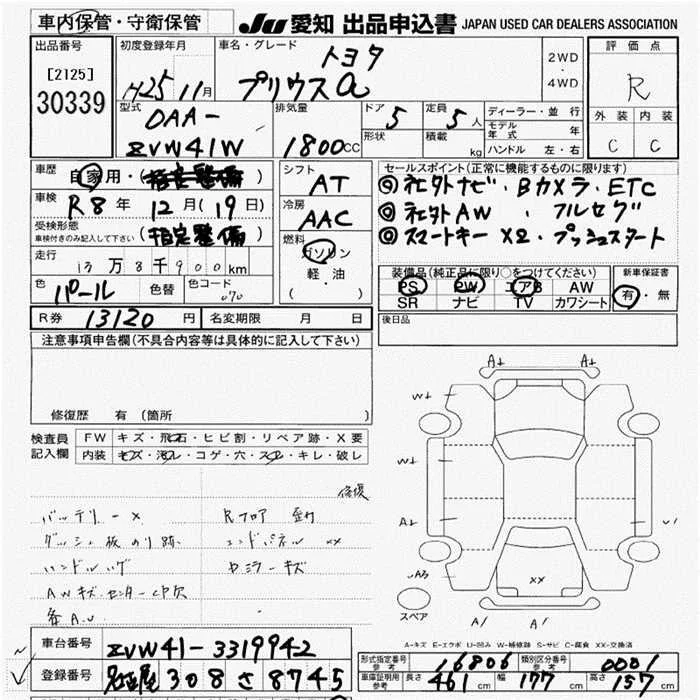 車内保管・守衛保管
JU 愛知 出品申込書 JAPAN USED CAR DEALERS ASSOCIATION
出品番号
[2125]
30339
初度登録年月
H25 11月
車名・グレード
トヨタ
プリウスα
2WD
・
4WD
評価点
R
外装 内装
C C
型式
DAA-
ZVW41W
排気量
1800CC
ドア 5
定員 5人
形状
積載 kg
ディーラー・並行
モデル年式 年
ハンドル 左・右
車歴
自家用・(指定整備)
車検
R8年 12月(19日)
受検形態
車検付きのみ記入して下さい (指定整備)
走行
13万8千900km
色 パール 色替 色コード 070
シフト
AT
冷房
AAC
燃料
ガソリン
軽・油
( ・ )
セールスポイント(正常に機能するものに限ります)
◎社外ナビ・Bカメラ・ETC
◎社外AW ・ フルセグ
◎スマートキーX2・プッシュスタート
装備品(純正品に限り○をつけてください)
PS PW エアB AW
SR ナビ TV カワシート
新車保証書
有・無
R券 13120円 名変期限 月 日
後日品
注意事項申告欄(不具合内容等は具体的に記入して下さい)
修復歴 有(箇所 )
検査員記入欄
FW キズ・飛石・ヒビ割・リペア跡・X要
内装 キズ・汚レ・コゲ・穴・スレ・キレ・破レ
修復
バッテリーX Rフロア
ダッシュ板のり跡 エンドパネル XX
ハンドルハゲ Dミラーキズ
AWキズ.センターCP欠
各A.U
A1 W1 A1
W1
A1
UA3
XX
A1 A1
スペア
A-キズ E-エクボ U-凹み W-補修跡 S-サビ C-腐食 XX-交換済
車台番号 ZVW41-3319942
登録番号 名古屋 308 さ 8745
型式指定番号 参考 16806 類別区分番号 参考 0001
車庫証明用 参考 長さ 461cm 幅 177cm 高さ 157cm